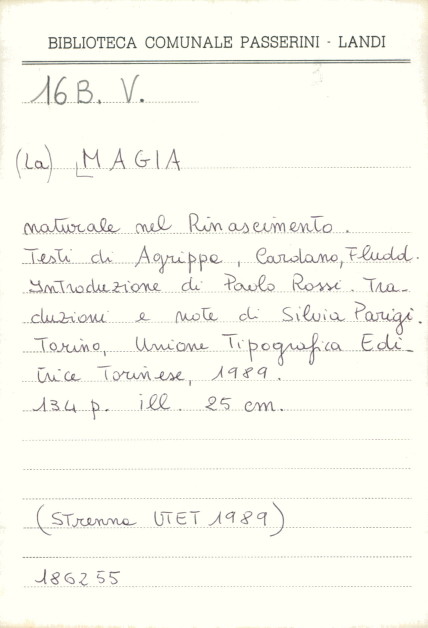 BIBLIOTECA COMUNALE PASSERINI - LANDI
16 B. V.
(La) MAGIA
naturale nel Rinascimento.
Testi di Agrippa, Cardano, Fludd.
Introduzione di Paolo Rossi. Tra-
duzioni e note di Silvia Parigi.
Torino, Unione Tipografica Edi-
trice Torinese, 1989.
134 p. ill. 25 cm.
(Strenna UTET 1989)
186255